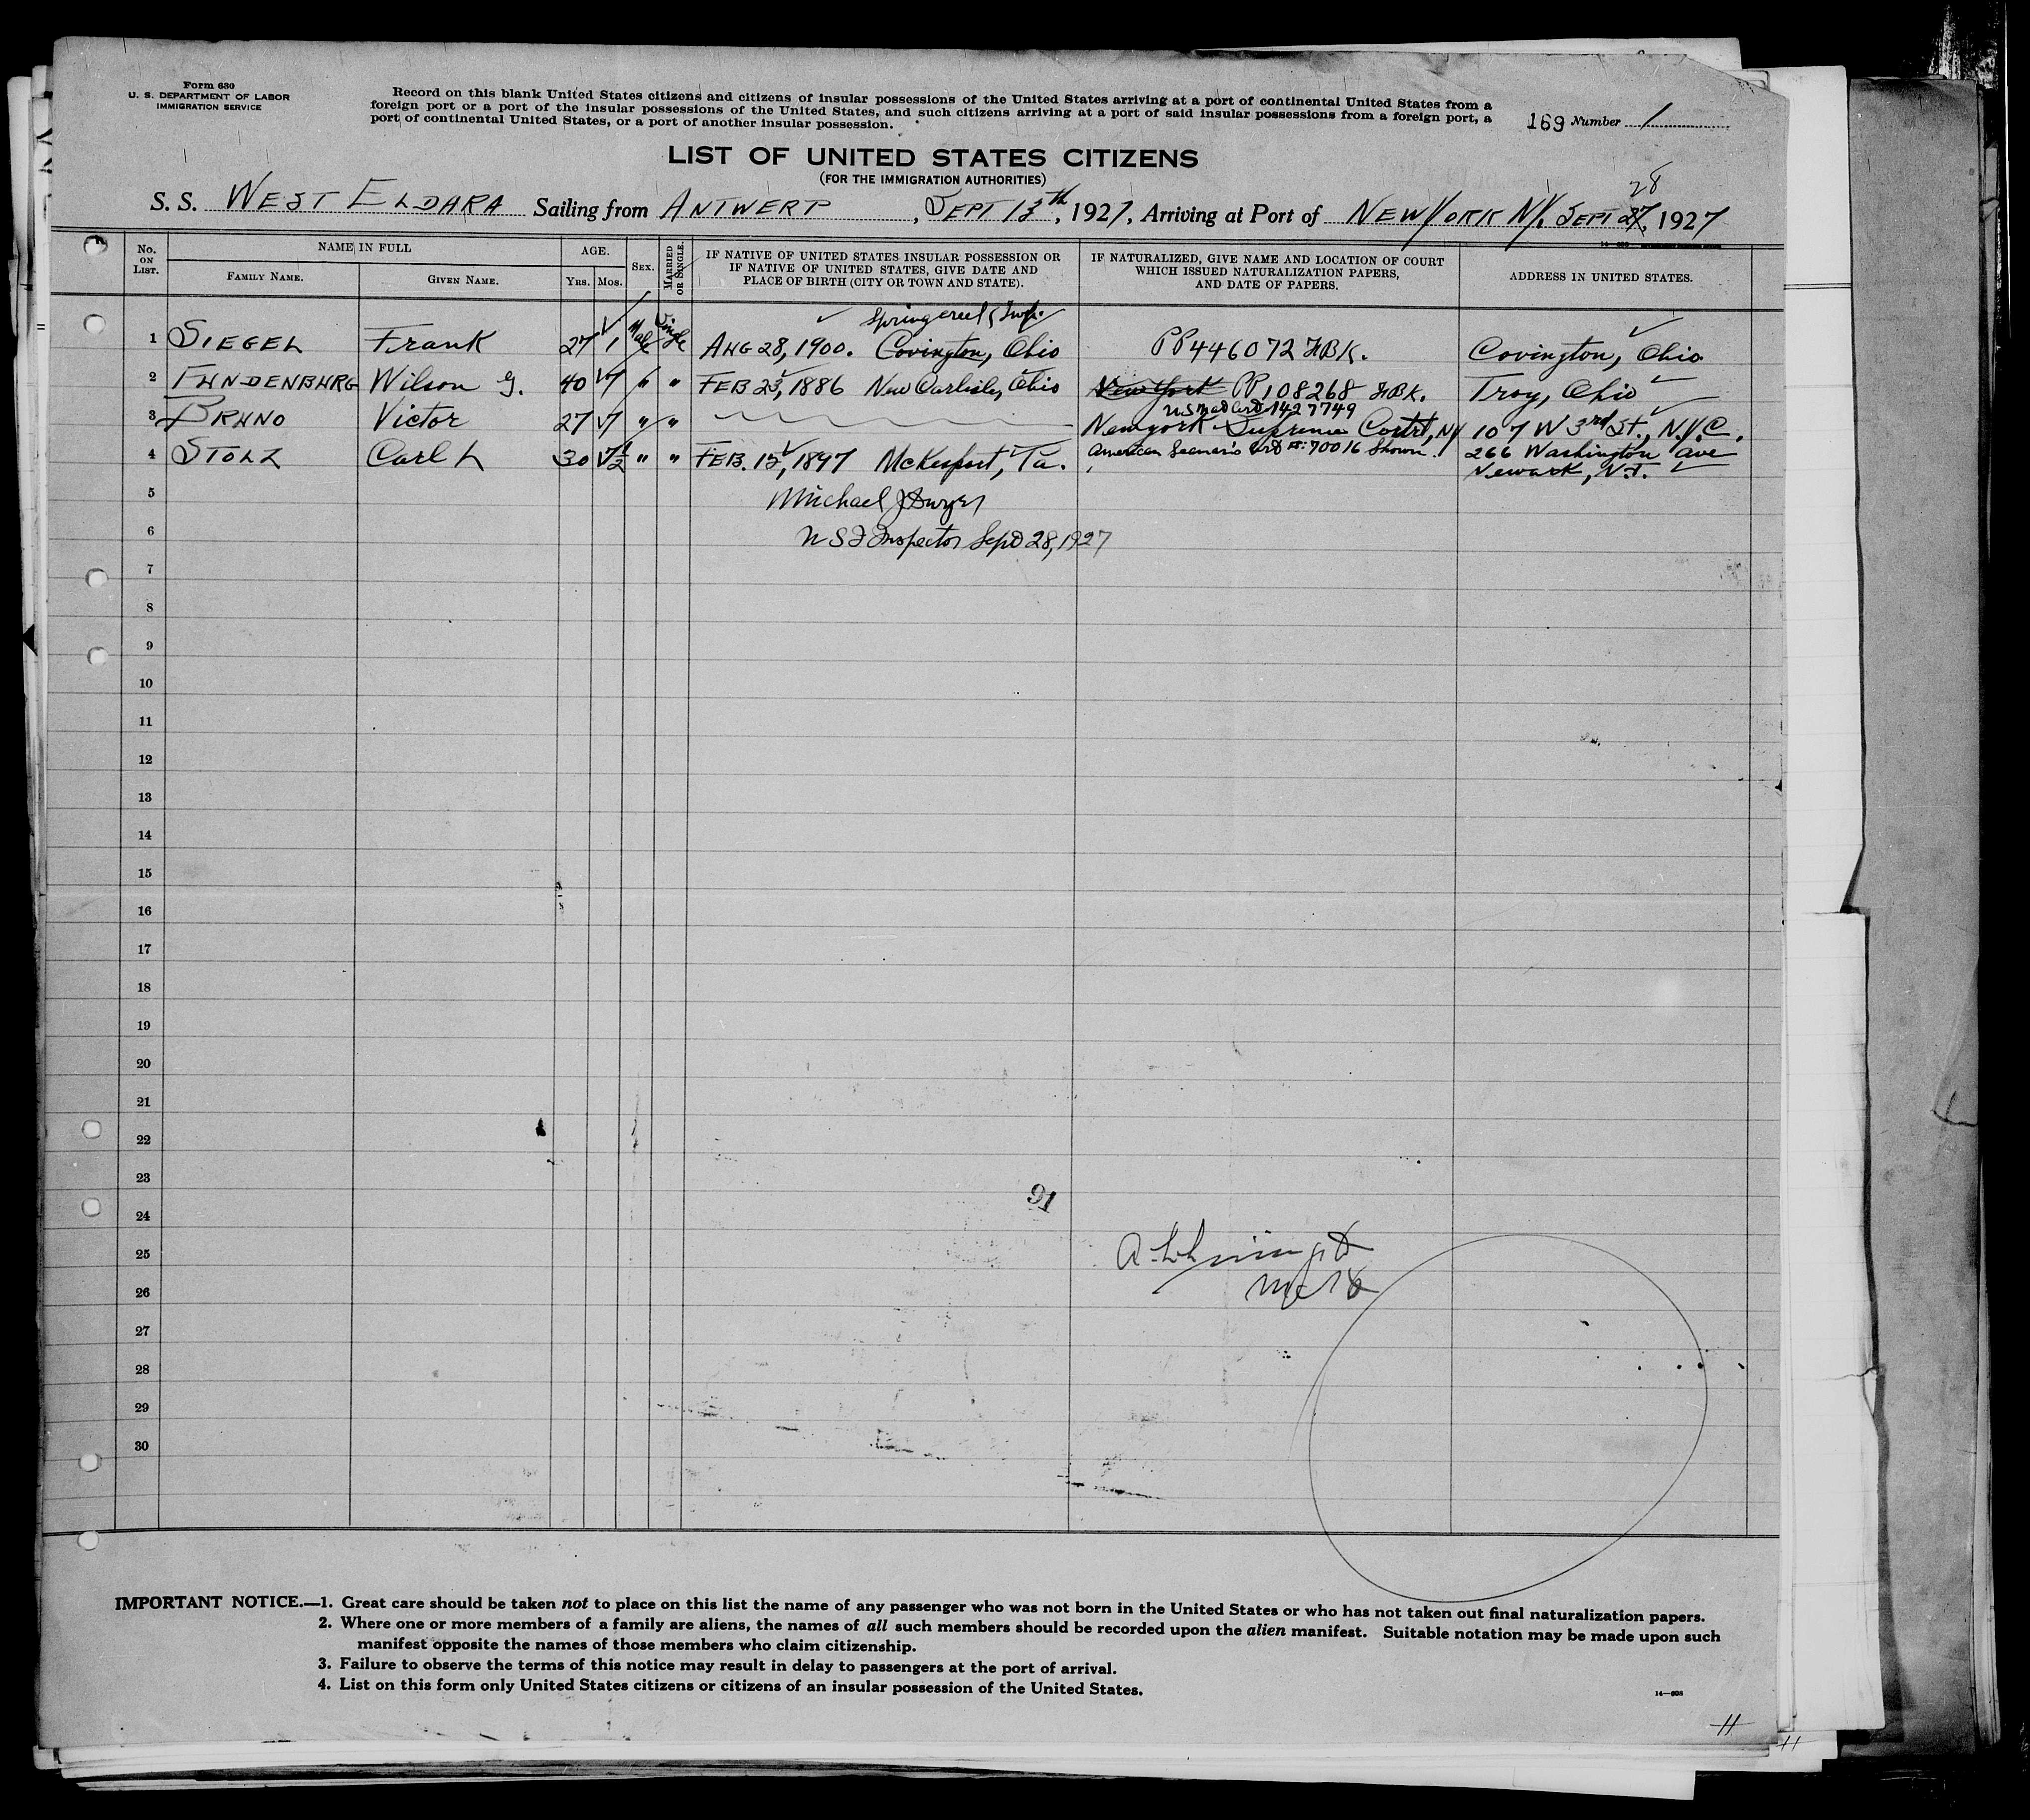 Form 630
U. S. DEPARTMENT OF LABOR
IMMIGRATION SERVICE
Record on this blank United States citizens and citizens of insular possessions of the United States arriving at a port of continental United States from a
foreign port or a port of the insular possessions of the United States, and such citizens arriving at a port of said insular possessions from a foreign port, a
port of continental United States, or a port of another insular possession.
169 Number 1
LIST OF UNITED STATES CITIZENS
(FOR THE IMMIGRATION AUTHORITIES)
28
S. S. WEST ELDARA Sailing from ANTWERP, SEPT 13th, 1927, Arriving at Port of NEW YORK N.Y. SEPT 27, 1927
No. ON LIST. NAME IN FULL FAMILY NAME. GIVEN NAME. AGE. YRS. MOS. SEX. MARRIED OR SINGLE. IF NATIVE OF UNITED STATES INSULAR POSSESSION OR IF NATIVE OF UNITED STATES, GIVE DATE AND PLACE OF BIRTH (CITY OR TOWN AND STATE). IF NATURALIZED, GIVE NAME AND LOCATION OF COURT WHICH ISSUED NATURALIZATION PAPERS, AND DATE OF PAPERS. ADDRESS IN UNITED STATES.
Springcreek Twp.
1 SIEGEL Frank 27 1 Male Single AUG 28, 1900. Covington, Ohio PP446072 HBK. Covington, Ohio
2 FUNDENBURG Wilson G. 40 7 " " FEB 23, 1886 New Carlisle, Ohio New York PP108268 HBK. Troy, Ohio
1427749
3 BRUNO Victor 27 7 " " New York Supreme Court, NY 107 W 3rd St., N.Y.C.
4 STOLZ Carl L 30 7½ " " FEB. 12, 1897 McKesport, Pa. American Seaman's Crd #: 70016 Shown. 266 Washington ave
Newark, N.J.
5 Michael J Dwyer
6 U S I Inspector Sept 28, 1927
7
8
9
10
11
12
13
14
15
16
17
18
19
20
21
22
23
91
24
25
26
27
28
29
30
IMPORTANT NOTICE.—1. Great care should be taken not to place on this list the name of any passenger who was not born in the United States or who has not taken out final naturalization papers.
2. Where one or more members of a family are aliens, the names of all such members should be recorded upon the alien manifest. Suitable notation may be made upon such
manifest opposite the names of those members who claim citizenship.
3. Failure to observe the terms of this notice may result in delay to passengers at the port of arrival.
4. List on this form only United States citizens or citizens of an insular possession of the United States.
14—608
11
11